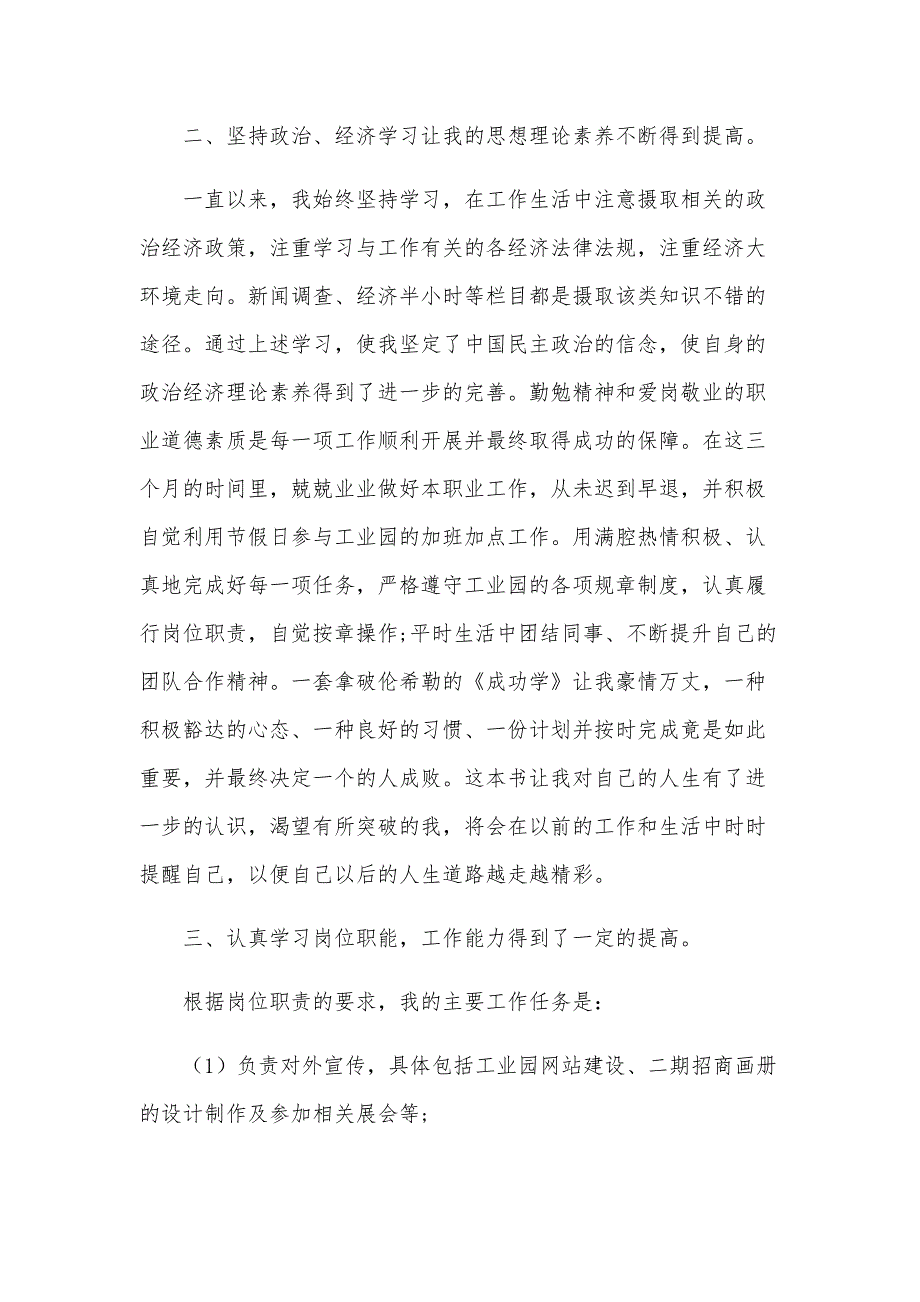 二、坚持政治、经济学习让我的思想理论素养不断得到提高。
一直以来，我始终坚持学习，在工作生活中注意摄取相关的政
治经济政策，注重学习与工作有关的各经济法律法规，注重经济大
环境走向。新闻调查、经济半小时等栏目都是摄取该类知识不错的
途径。通过上述学习，使我坚定了中国民主政治的信念，使自身的
政治经济理论素养得到了进一步的完善。勤勉精神和爱岗敬业的职
业道德素质是每一项工作顺利开展并最终取得成功的保障。在这三
个月的时间里，兢兢业业做好本职业工作，从未迟到早退，并积极
自觉利用节假日参与工业园的加班加点工作。用满腔热情积极、认
真地完成好每一项任务，严格遵守工业园的各项规章制度，认真履
行岗位职责，自觉按章操作;平时生活中团结同事、不断提升自己的
团队合作精神。一套拿破伦希勒的《成功学》让我豪情万丈，一种
积极豁达的心态、一种良好的习惯、一份计划并按时完成竟是如此
重要，并最终决定一个的人成败。这本书让我对自己的人生有了进
一步的认识，渴望有所突破的我，将会在以前的工作和生活中时时
提醒自己，以便自己以后的人生道路越走越精彩。
三、认真学习岗位职能，工作能力得到了一定的提高。
根据岗位职责的要求，我的主要工作任务是：
（1）负责对外宣传，具体包括工业园网站建设、二期招商画册
的设计制作及参加相关展会等;